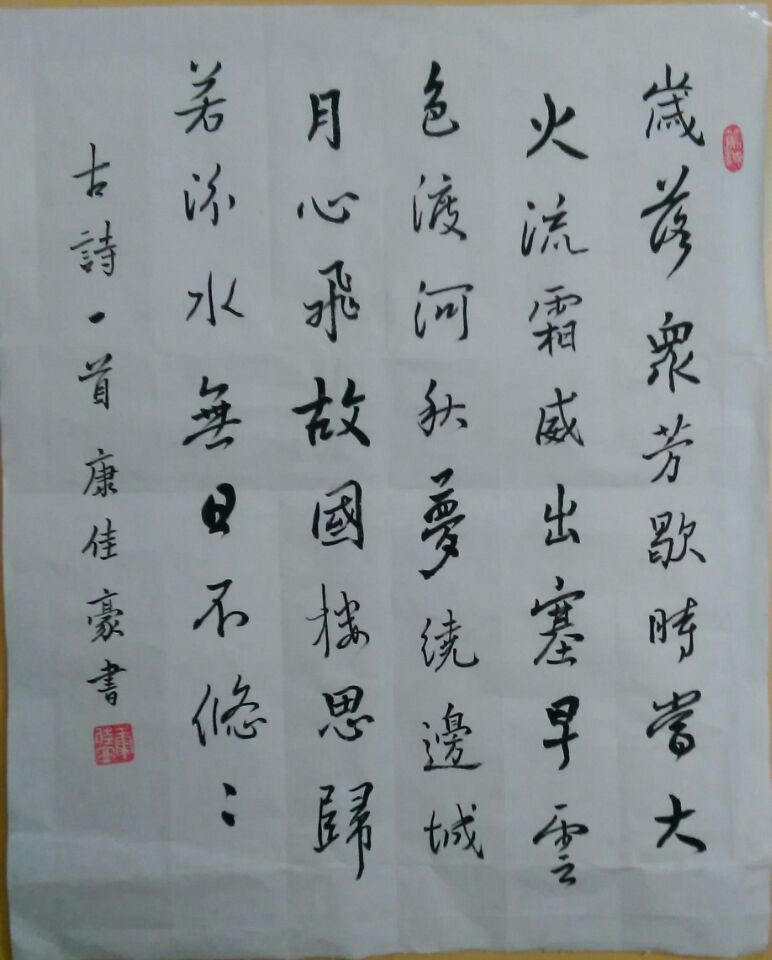 歲落眾芳歇時當大
火流霜威出塞早雲
色渡河秋夢繞邊城
月心飛故國樓思歸
若汾水無日不悠〻
古詩一首 康佳豪書